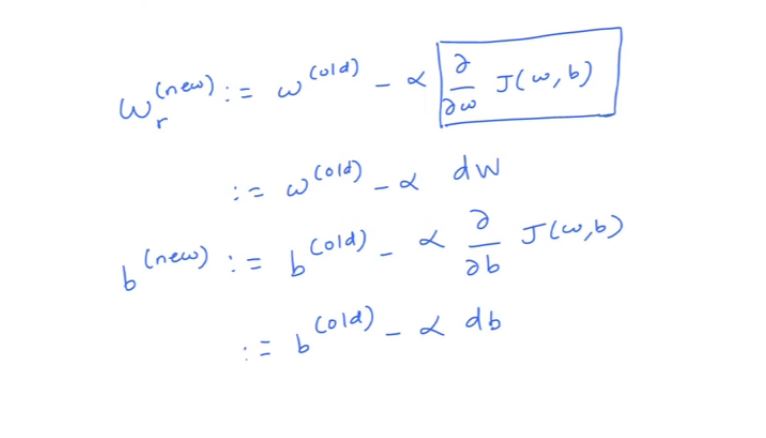 w_r^(new) := w^(old) - α ∂/∂w J(w,b)
:= w^(old) - α dw
b^(new) := b^(old) - α ∂/∂b J(w,b)
:= b^(old) - α db